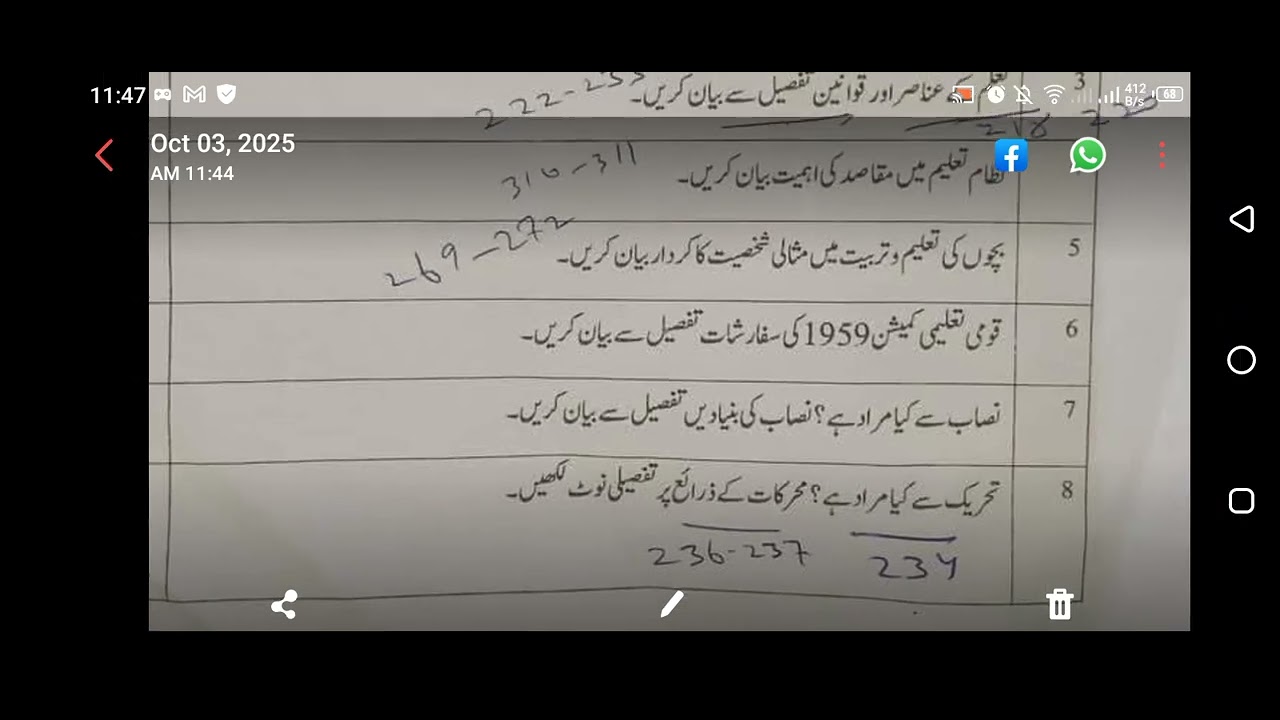 11:47
412 B/s
68
Oct 03, 2025
AM 11:44
3
تعلم کے عناصر اور قوانین تفصیل سے بیان کریں۔
222-233
218
نظام تعلیم میں مقاصد کی اہمیت بیان کریں۔
310-311
5
بچوں کی تعلیم و تربیت میں مثالی شخصیت کا کردار بیان کریں۔
269-272
6
قومی تعلیمی کمیشن 1959 کی سفارشات تفصیل سے بیان کریں۔
7
نصاب سے کیا مراد ہے؟ نصاب کی بنیادیں تفصیل سے بیان کریں۔
8
تحریک سے کیا مراد ہے؟ محرکات کے ذرائع پر تفصیلی نوٹ لکھیں۔
236-237
234